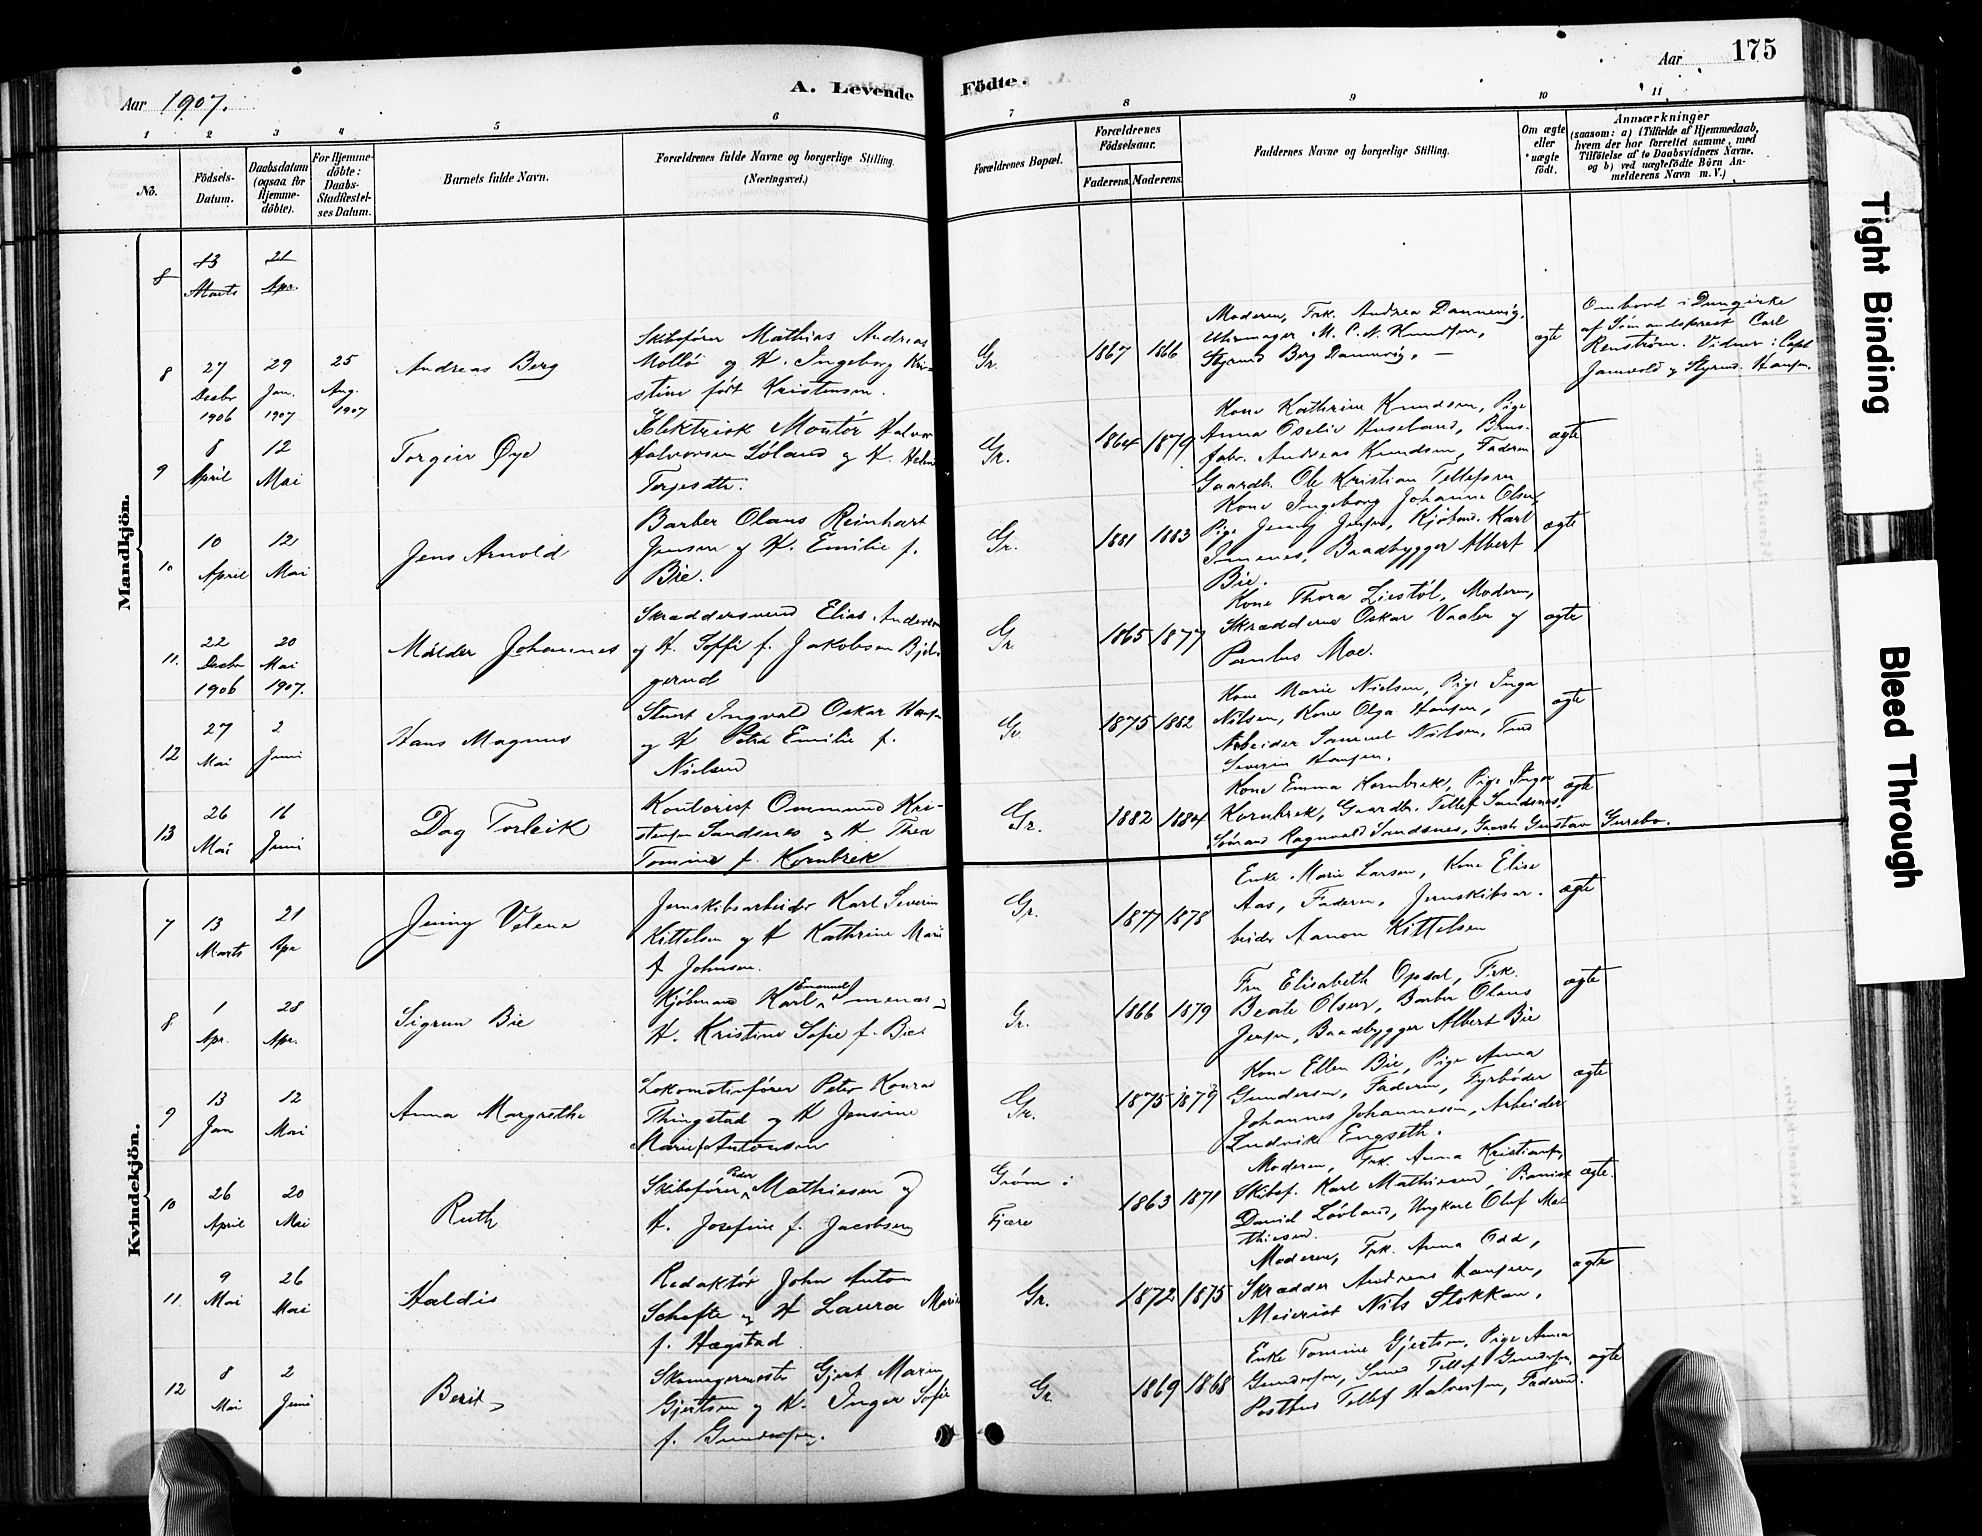 Aar 1907.
A. Levende
Födte.
Aar
175
1 2 3 4 5 6
7 8 9 10 11
No.
Födsels-
Datum.
Daabsdatum
(ogsaa for
Hjemme-
döbte).
For Hjemme-
döbte:
Daabs-
Stadfæstel-
ses Datum.
Barnets fulde Navn.
Forældrenes fulde Navne og borgerlige Stilling.
(Næringsvei.)
Forældrenes Bopæl.
Forældrenes
Födselsaar.
Faderens.
Moderens.
Faddernes Navne og borgerlige Stilling.
Om ægte
eller
uægte
födt.
Anmærkninger
(saasom: a) i Tilfælde af Hjemmedaab,
hvem der har forrettet samme, med
Tilföielse af to Daabsvidners Navne.
og b) ved uægtefödte Börn An-
melderens Navn m. V.)
Mandkjön.
8
13
Marts
21
Apr.
8
27
Decbr
1906
29
Jan.
1907
25
Aug.
1907
Andreas Berg
Skibsfører Mathias Andreas
Molló og H. Ingeborg Kri-
stine født Kristensen.
Gr.
1867 1866
Moderen, Frk. Andrea Dannevig,
Uhrmager M. C. N. Knudsen,
Styrmd Berg Dannevig. —
ægte
Ombord i Dunqirke
af Sømandsprest Carl
Renström. Vidner: Capt
Jamvold og Styrmd. Hansen.
9
8
April
12
Mai
Torgeir Øye
Elektrisk Montör Halvor
Halvorsen Løland og H. Helene
Terjesdtr.
Gr.
1864 1879
Kone Kathrine Knudsen, Pige
Anna Oselie Huseland, Brus-
fabr. Andreas Knudsen, Faderen
Gaardb. Ole Kristian Tellefsen
ægte
10
10
April
12
Mai
Jens Arnold
Barber Olaus Reinhart
Jensen og H. Emilie f.
Bie.
Gr.
1881 1883
Kone Ingeborg Johanne Olsen
Pige Jenny Jensen, Kjøbmd. Karl
Imenes, Baadbygger Albert
Bie.
ægte
11.
22
Decbr
1906
20
Mai
1907.
Mälder Johannes
Skræddersvend Elias Andersen
og H. Soffie f. Jakobsen Bjel-
gerud
Gr
1865 1877
Kone Thora Liestøl, Moderen,
Skrædderne Oskar Vaaler og
Paulus Moe.
ægte
12
27
Mai
2
Juni
Hans Magnus
Stuert Ingvald Oskar Hansen
og H Petra Emilie f.
Nielsen
Gr.
1875 1882
Kone Marie Nielsen, Pige Inga
Nilsen, Kone Olga Hansen,
Arbeider Samuel Nielsen, Tømd
Severin Hansen.
ægte
13
26
Mai
16
Juni
Dag Torleik
Kontorist Ommund Kri-
stensen Sandsnes og H Thea
Tomine f. Kornbrek
Gr.
1882 1884
Kone Emma Kornbrek, Pige Inger
Kornbrek, Gaardbr. Tellef Sandsnes,
Sømand Ragnvald Sandsnes, Gaardb Gustav Gurebo.
ægte
Kvindekjön.
7
13
Marts
21
Apr
Jenny Velena
Jernskibsarbeider Karl Severin
Kittelsen og H Kathrine Marie
f Johnsen.
Gr.
1877 1878
Enke Marie Larsen, Kone Elise
Aas, Faderen, Jernskibsar-
beider Aanon Kittelsen
ægte
8
1
Apr.
28
Apr.
Sigrun Bie
Kjøbmand Karl Emanuel Imenæs og
H. Kristine Sofie f. Bie
Gr.
1866 1879
Fru Elisabeth Opsal, Frk.
Beate Olsen, Barber Olaus
Jensen, Baadbygger Albert Bie
ægte
9
13
Jan
12
Mai
Anna Margrethe
Lokomotivfører Peter Konrad
Thingstad og H Jensine
Marie f Antonsen
Gr.
1875 1879
Kone Ellen Bie, Pige Anna
Gundersen, Faderen, Fyrbøder
Johannes Johannesen, Arbeider
Ludvik Engseth.
ægte
10
26
April
20
Mai
Ruth
Skibsfører Peder Mathiesen og
H. Josefine f. Jacobsen
Grøm i
Fjære
1863 1871
Moderen, Frk. Anna Kristiansen,
Skibsf. Karl Mathiesen, Pianist
Daniel Løvland, Ungkarl Oluf Ma-
thiesen.
ægte.
11
9
Mai
26
Mai
Haldis
Redaktør John Anton
Schefte og H Laura Marie
f. Hægstad.
Gr.
1872 1875
Moderen, Frk. Anna Odd,
Skrædder Andreas Hansen,
Meierist Nils Stokkan.
ægte
12
8
Mai
2
Juni
Berit
Skomagermester Gjert Marin
Gjertsen og H. Inger Sofie
f. Gundersen.
Gr.
1869 1868
Enke Tomine Gjertsen, Pige Anna
Gundersen, Smed Tellef Gundersen,
Postbud Tellef Halvorsen, Faderen.
ægte
Tight Binding
Bleed Through